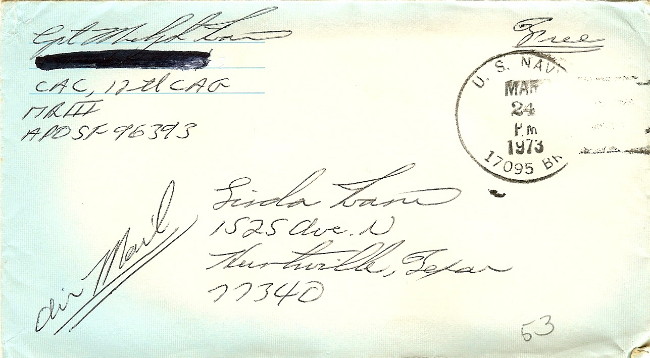 Cpt
Free
CAC, 12th CAG
MR III
APO SF 96393
U. S. NAV
MAR
24
PM
1973
17095 BR
Linda
1525 Ave. N
Huntsville, Texas
77340
Air Mail
53